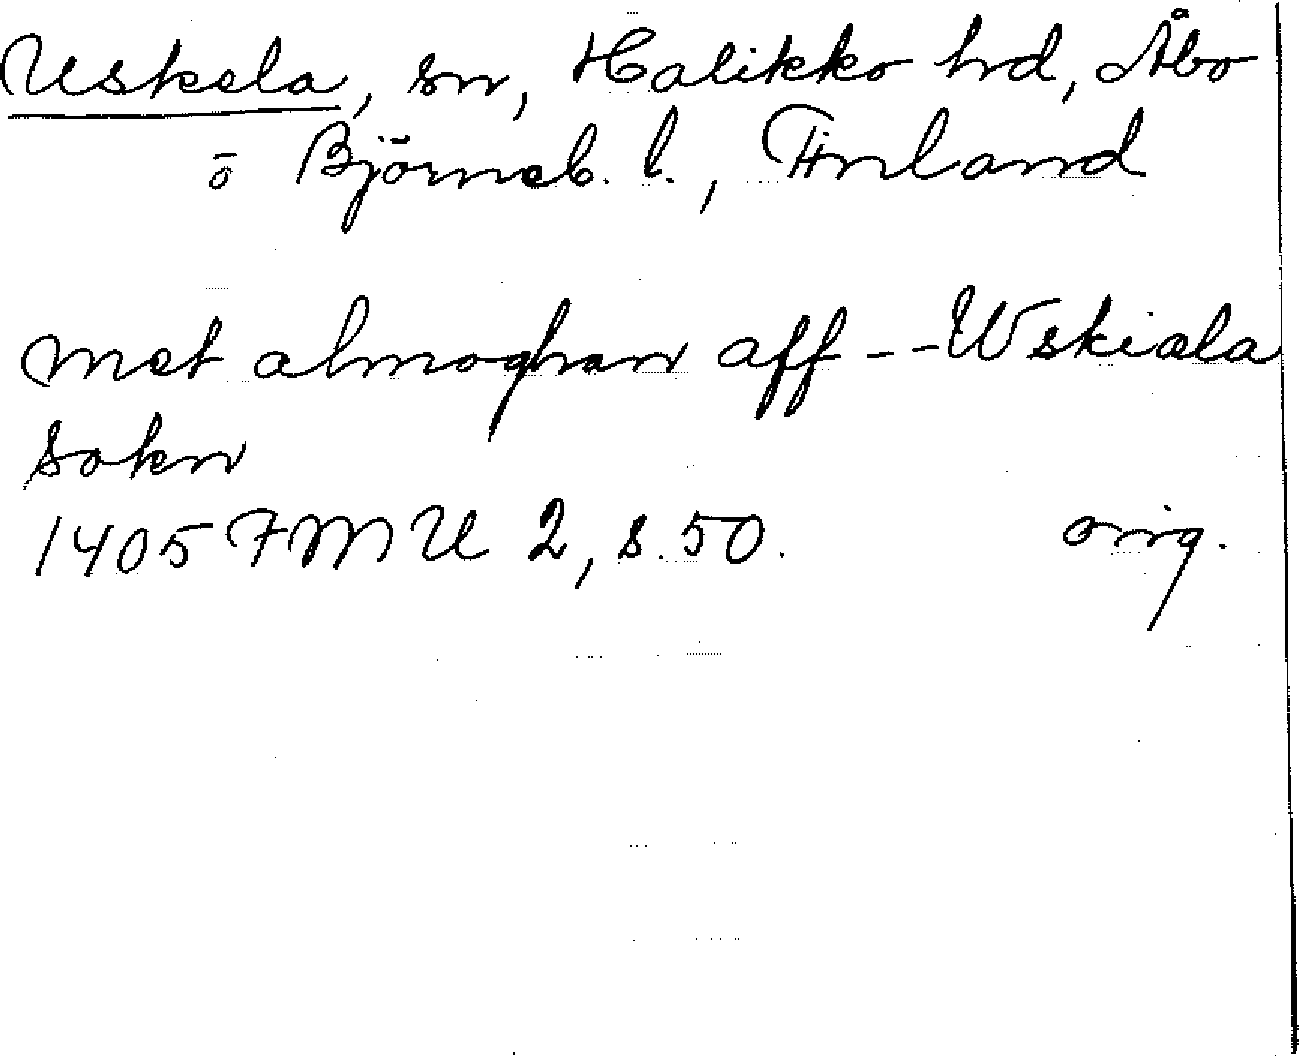 Uskela, sn, Halikko hd, Åbo
o Björneb. l., Finland
met almoghan aff -- Wskiala
sokn
1405 FMU 2, s. 50. orig.